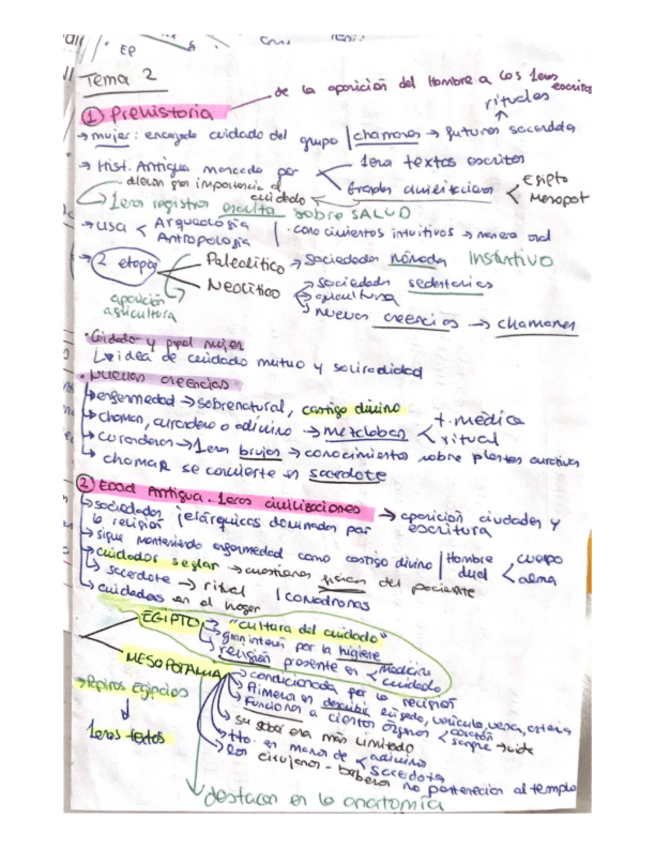 EP
Tema 2
de la aparición del Hombre a los 1eros escritos
① Prehistoria
rituales
→ mujer: encargada cuidado del grupo | chamanes → futuros sacerdotes
→ Hist. Antigua marcada por
1eros textos escritos
Grandes civilizaciones
Egipto
Mesopot
daban gran importancia al cuidado
1eros registros escritos sobre SALUD
→ usa
Arqueología
Antropología
· conocimientos intuitivos → manera oral
→ 2 etapas
Paleolítico → sociedades nómada
Instintivo
Neolítico
→ sociedades sedentarias
→ agricultura
→ nuevas creencias → chamanes
aparición agricultura
· Cuidado y papel mujer
↳ idea de cuidado mutuo y solidaridad
· nuevas creencias
↳ enfermedad → sobrenatural, castigo divino
↳ chaman, curandero o adivino → mezclaban
t. médica
ritual
↳ curanderos → 1eros brujos → conocimientos sobre plantas curativas
↳ chaman se convierte en sacerdote
② Edad Antigua. 1eras civilizaciones → aparición ciudades y escritura
↳ sociedades jerárquicas dominadas por la religión
↳ sigue manteniendo enfermedad como castigo divino | Hombre dual
cuerpo
alma
↳ cuidador seglar → cuestiones físicas del paciente
↳ sacerdote → ritual
| comadronas
↳ cuidadas en el hogar
EGIPTO
→ "cultura del cuidado"
→ gran interés por la higiene
→ religión presente en
medicina
cuidado
MESOPOTAMIA
→ condicionada por la religión
→ Primeros en describir hígado, vesícula, vena, arteria
→ Funciones a ciertos órganos
corazón
sangre → vida
→ su saber era más limitado
→ tto. en manos de
adivino
sacerdote
→ Los cirujanos - barberos no pertenecían al templo
→ Papiros Egipcios
↓
1eros textos
destacan en la anatomía